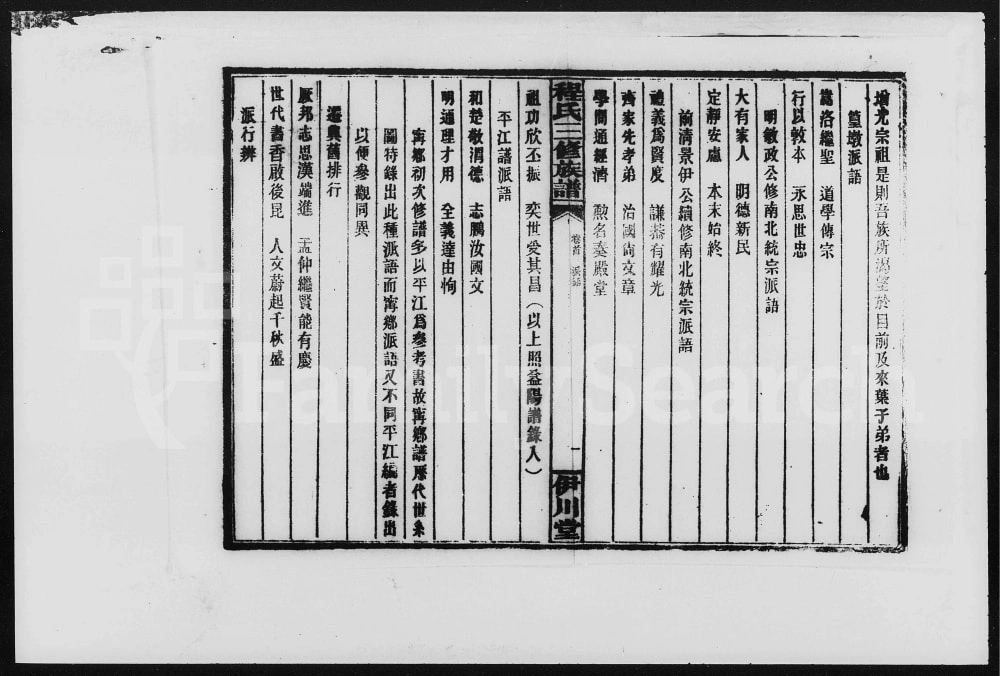 增光宗祖是則吾族所渴望於目前及來葉子弟者也
篁墩派語
嵩洛繼聖 道學傳宗
行以敦本 永思世忠
明敏政公修南北統宗派語
大有家人 明德新民
定靜安慮 本末始終
前清景伊公續修南北統宗派語
禮義爲賢度 謙恭有耀光
齊家先孝弟 治國尚文章
學問通經濟 勲名奏殿堂
程氏三修族譜 卷首 派語 一 伊川堂
祖功欣丕振 奕世愛其昌（以上照益陽譜錄入）
平江譜派語
和楚敬渭德 志鵬汝國文
明通理才用 全義達由恂
甯鄉初次修譜多以平江爲參考書故甯鄉譜歷代世系
圖特錄出此種派語而甯鄉派語又不同平江編者錄出
以便參觀同異
遷興舊排行
厥邦志思漢端進 孟仲繼賢能有慶
世代書香啟後昆 人文蔚起千秋盛
派行辨
FamilySearch